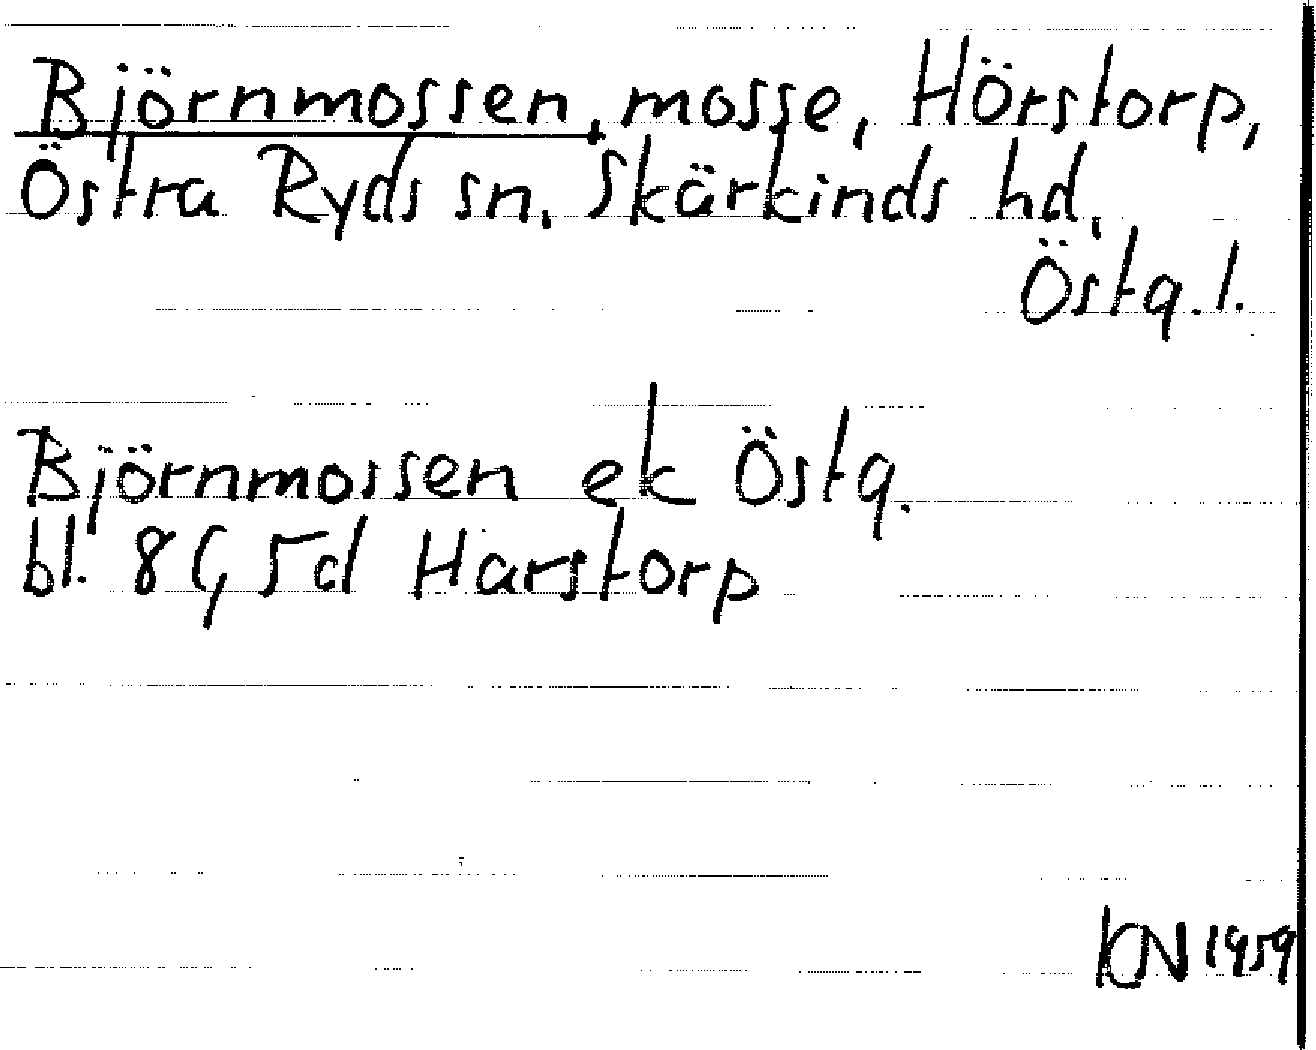 Björnmossen, mosse, Hörstorp,
Östra Ryds sn, Skärkinds hd,
Östg. l.
Björnmossen ek Östg.
bl. 8 G, 5d Harstorp
KN 1959